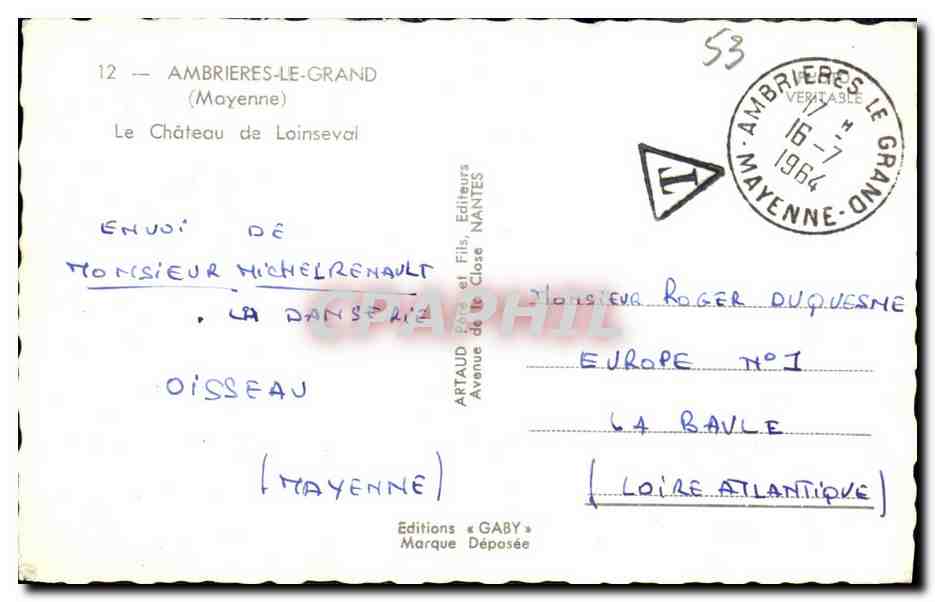 53
12 — AMBRIERES-LE-GRAND
(Mayenne)
Le Château de Loinseval
PHOTO
VERITABLE
AMBRIERES LE GRAND
17 H
16-7
1964
MAYENNE
T
ENVOI DE
MONSIEUR MICHEL RENAULT
. LA DANSERIE
OISSEAU
(MAYENNE)
ARTAUD Père et Fils, Editeurs
Avenue de la Close NANTES
CPAPHIL
MONSIEUR ROGER DUQUESNE
EUROPE N°1
LA BAULE
(LOIRE ATLANTIQUE)
Editions « GABY »
Marque Déposée